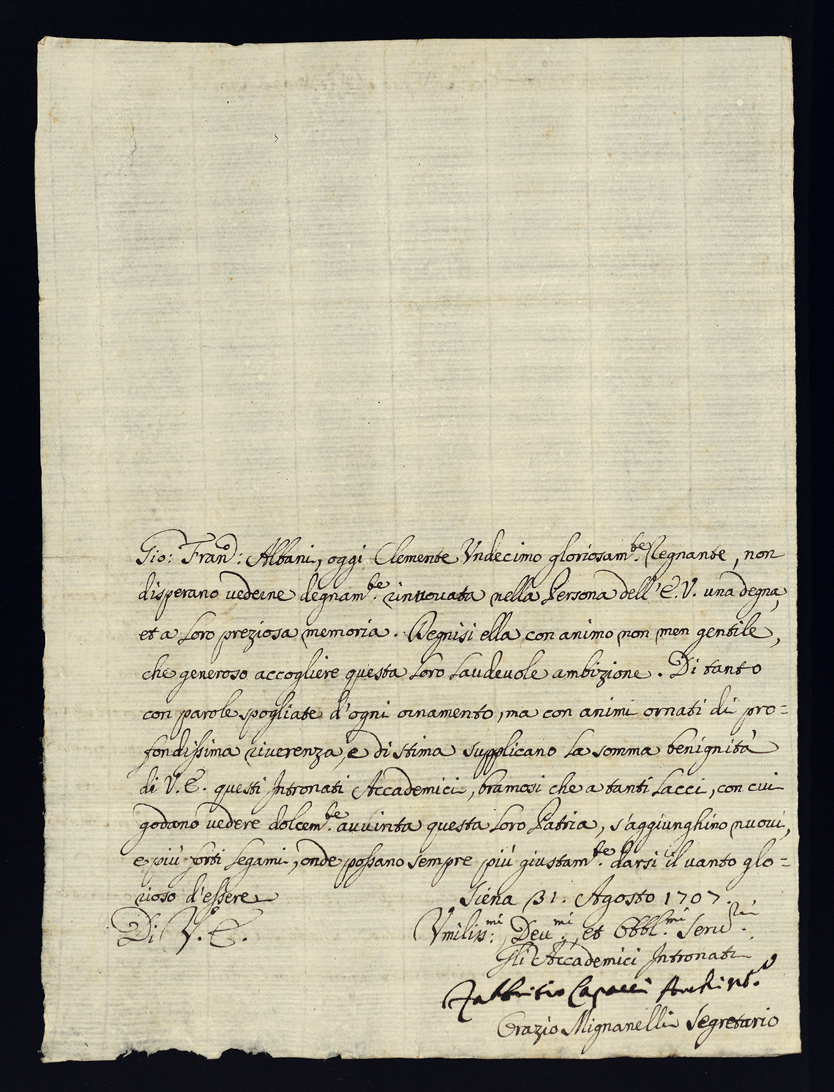 Gio: Fran.co: Albani, oggi Clemente Undecimo gloriosam.te Regnante, non
disperano vederne degnam.te rinnovata nella Persona dell' E.V. una degna,
et a Loro preziosa memoria. Degnisi ella con animo non men gentile,
che generoso accogliere questa loro Laudevole ambizione. Di tanto
con parole spogliate d'ogni ornamento, ma con animi ornati di pro=
fondissima riverenza, e di stima supplicano La somma benignità
di V.E. questi Intronati Accademici, bramosi che a tanti Lacci, con cui
godano vedere dolcem.te avvinta questa Loro Patria, s'aggiunghino nuovi,
e più forti Legami, onde possano sempre più giustam.te darsi il vanto glo=
rioso d'essere
Siena 31. Agosto 1707.
Di V.E.
Umiliss.mi: Dev.mi, et Obbl.mi Serv.ri
Gli Accademici Intronati
Fabbritio Capacci Archint.o
Orazio Mignanelli Segretario